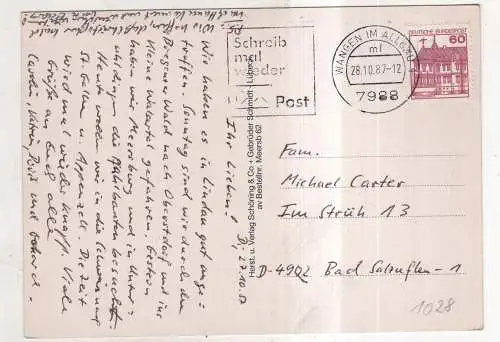 Di, 27.10.87
Ihr Lieben!
Wir haben es in Lindau gut ange-
troffen. Sonntag sind wir durch den
Bregenzer Wald nach Oberstdorf und ins
kleine Walsertal gefahren. Gestern
haben wir Meersburg und in Unter-
uhldingen die Pfahlbauten besucht.
Heute wollen wir in die Schweiz nach
St. Gallen u. Appenzell. Die Zeit
wird mal wieder knapp. Viele
Grüße an Euch alle
PS:
Wir
Schreib
mal
wieder
Post
WANGEN IM ALLGÄU
ml
28.10.87-12
7988
DEUTSCHE BUNDESPOST
60
Herst. u. Verlag Schöning & Co + Gebrüder Schmidt · Lübeck
Bestellnr. Meersb 62
Fam.
Michael Carter
Im Strüh 13
D-4902 Bad Salzuflen-1
1028